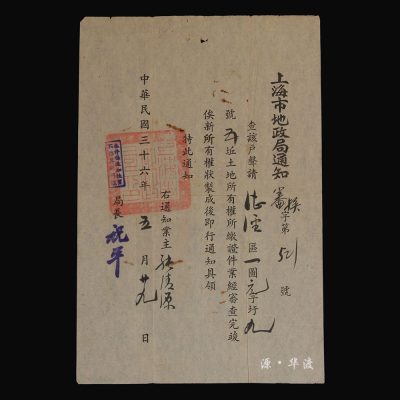 上海市地政局通知 審 字第521號
查該戶聲請 區一圖元字圩九
號五坵土地所有權所繳證件業經審查完竣
俟新所有權狀製成後即行通知具領
特此通知
右通知業主張清源
局長祝平
中華民國三十六年五月廿九日
源·华渡